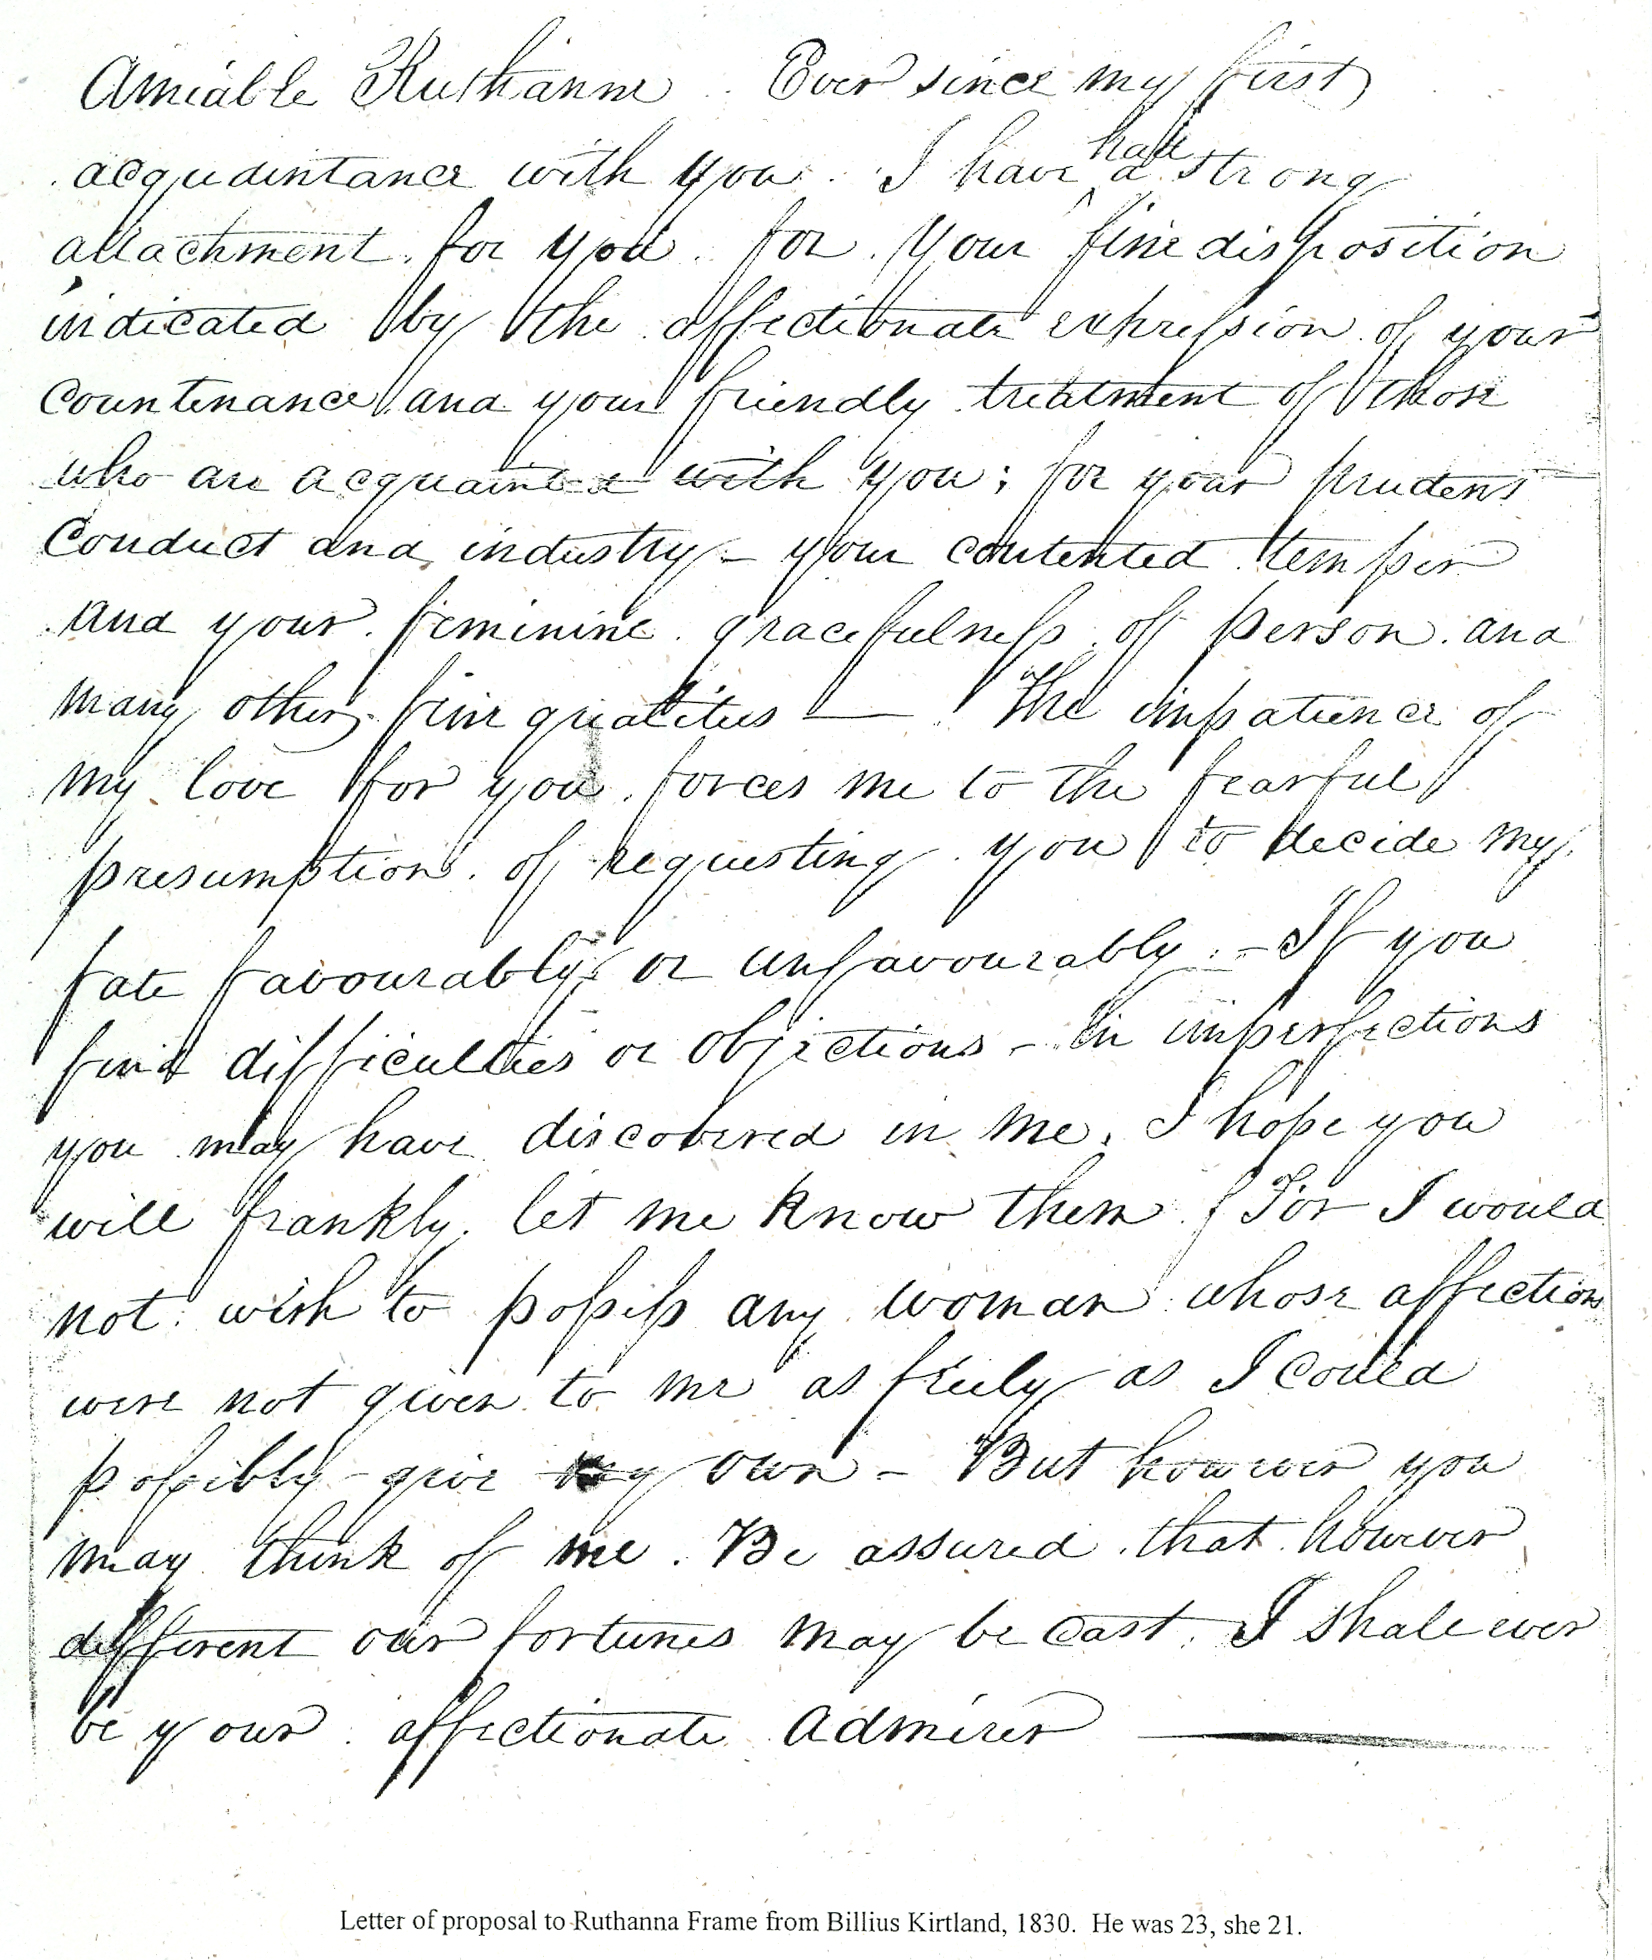 Amiable Ruthanne Ever since my first
acquaintance with you. I have had a strong
attachment for you for your fine disposition
indicated by the affectionate expression of your
countenance and your friendly treatment of those
who are acquainted with you; for your prudent
Conduct and industry – your contented temper
and your feminine gracefulness of person and
many other fine qualities — The impatience of
my love for you forces me to the fearful
presumption of requesting you to decide my
fate favourably or unfavourably. – If you
find difficulties or objections – in imperfections
you may have discovered in me, I hope you
will frankly let me know them. For I would
not wish to possess any woman whose affections
were not given to me as freely as I could
possibly give my own – But however you
may think of me. Be assured that however
different our fortunes may be cast. I shall ever
be your affectionate admirer —
Letter of proposal to Ruthanna Frame from Billius Kirtland, 1830. He was 23, she 21.